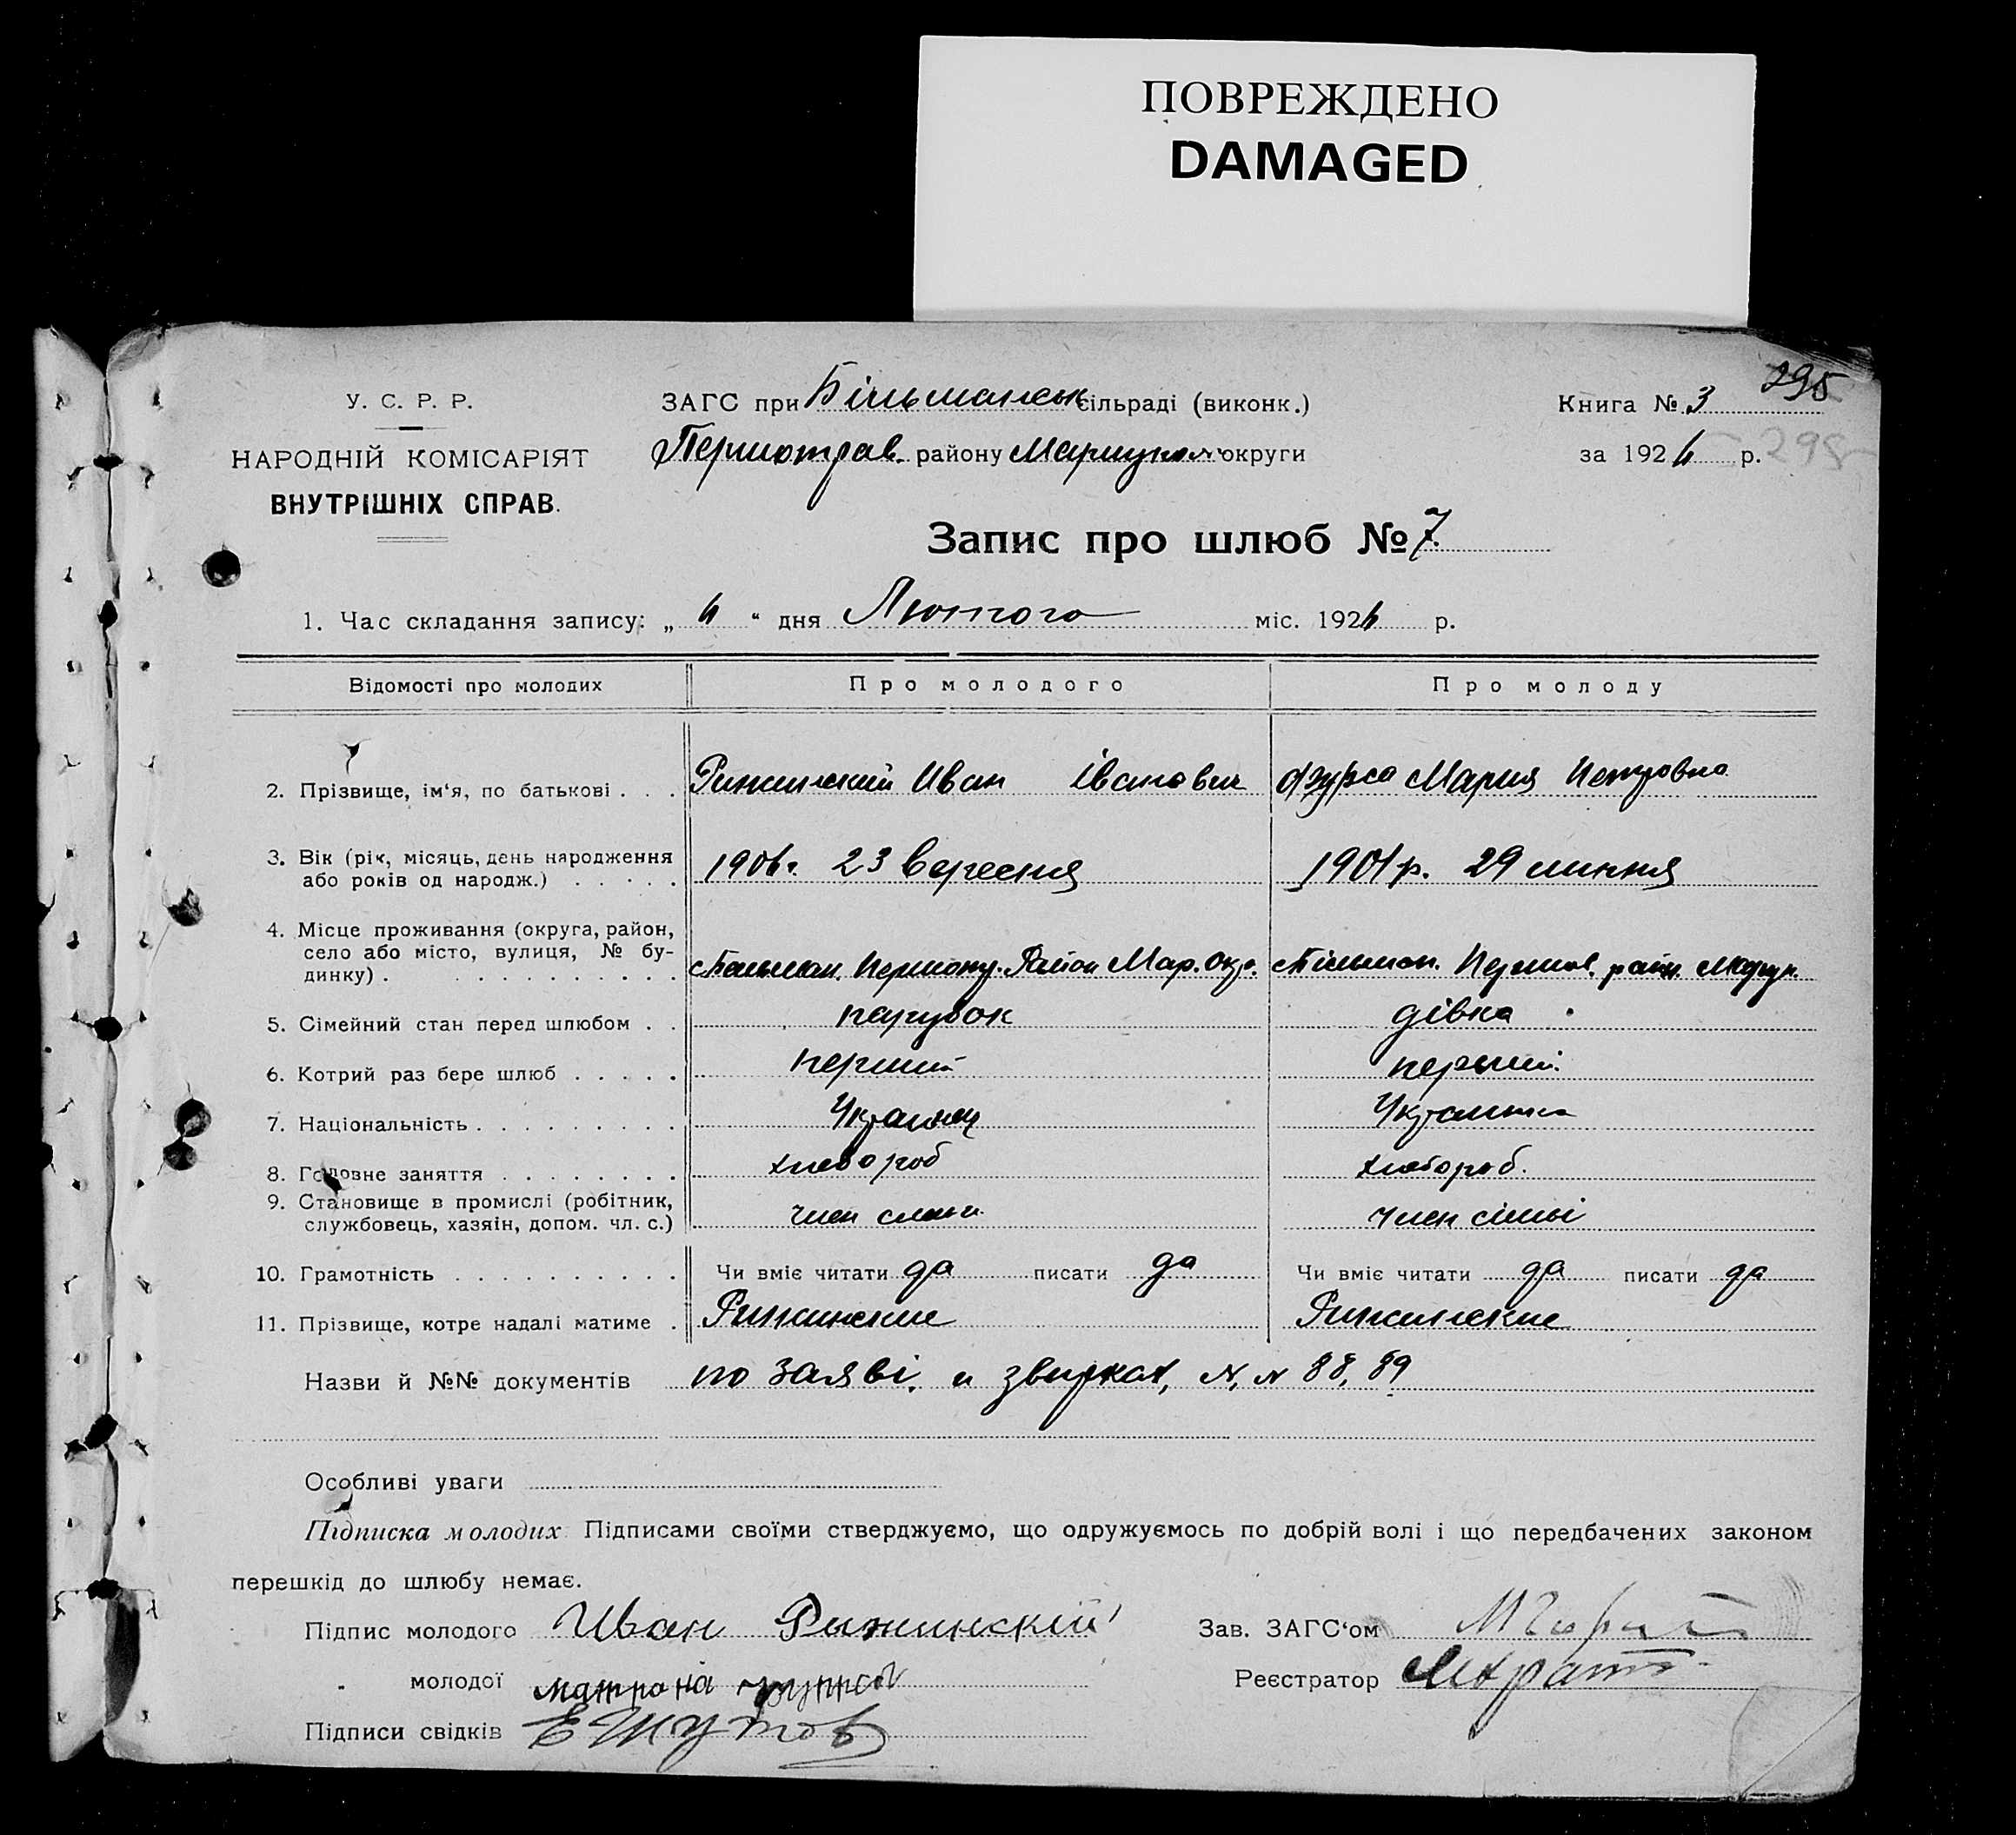 ПОВРЕЖДЕНО
DAMAGED
295
У. С. Р. Р.
НАРОДНІЙ КОМІСАРІЯТ
ВНУТРІШНІХ СПРАВ.
ЗАГС при Більманськ сільраді (виконк.)
Книга № 3
Першотрав. району Маріуполь округи
за 1926 р. 298
Запис про шлюб № 7.
1. Час складання запису: „ 6 “ дня Лютого міс. 1926 р.
Відомості про молодих Про молодого Про молоду
2. Прізвище, ім‘я, по батькові . . . Рижинський Иван Іванович Фурса Мария Петровна
3. Вік (рік, місяць, день народження
або років од народж.) . . . . . 1906г. 23 вересня 1901р. 29 липня
4. Місце проживання (округа, район,
село або місто, вулиця, № бу-
динку) . . . . . . . . . . Район Мар. Окр. с Більман. Першот. райн. Маріуп.
5. Сімейний стан перед шлюбом . . парубок дівка
6. Котрий раз бере шлюб . . . . . перший перший.
7. Національність . . . . . . . . . Українец Українка
8. Головне заняття . . . . . . . . хлебороб хлебороб.
9. Становище в промислі (робітник,
службовець, хазяїн, допом. чл. с.) член семьи член сімьі
10. Грамотність . . . . . . . . . . Чи вміє читати да писати да Чи вміє читати да писати да
11. Прізвище, котре надалі матиме . Рижинские Рижинские
Назви й №№ документів по заяві. и N, N 88, 89
Особливі уваги
Підписка молодих Підписами своїми стверджуємо, що одружуємось по добрій волі і що передбачених законом
перешкід до шлюбу немає.
Підпис молодого Иван Рижинскій Зав. ЗАГС‘ом
„ молодої матрона Реєстратор
Підписи свідків Е Шутов